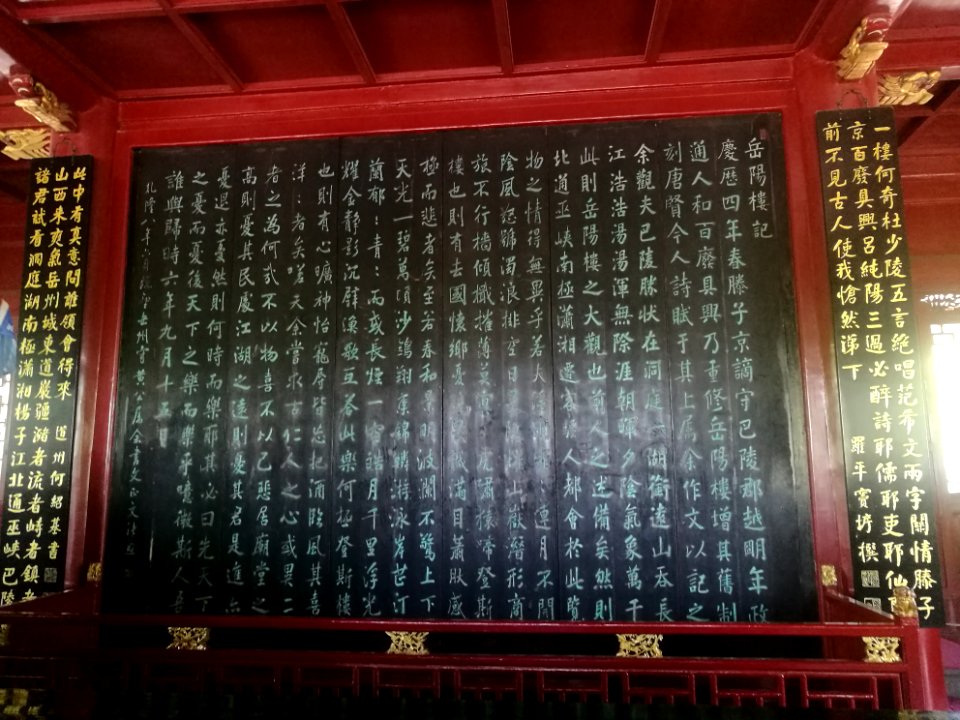 一樓何奇杜少陵五言絕唱范希文兩字關情滕子
京百廢具興呂純陽三過必醉詩耶儒耶吏耶仙耶
前不見古人使我愴然涕下
羅平竇垿撰
岳陽樓記
慶歷四年春滕子京謫守巴陵郡越明年政
通人和百廢具興乃重修岳陽樓增其舊制
刻唐賢今人詩賦于其上屬余作文以記之
余觀夫巴陵勝狀在洞庭一湖銜遠山吞長
江浩浩湯湯渾無際涯朝暉夕陰氣象萬千
此則岳陽樓之大觀也前人之述備矣然則
北通巫峽南極瀟湘遷客騷人都會於此覽
物之情得無異乎若夫霪雨霏：連月不開
陰風怒號濁浪排空日星隱曜山嶽潛形商
旅不行檣傾檝摧薄暮冥：虎嘯猿啼登斯
樓也則有去國懷鄉憂讒畏譏滿目蕭然感
極而悲者矣至若春和景明波瀾不驚上下
天光一碧萬頃沙鷗翔集錦鱗游泳岸芷汀
蘭郁：青：而或長煙一空皓月千里浮光
耀金靜影沉璧漁歌互答此樂何極登斯樓
也則有心曠神怡寵辱皆忘把酒臨風其喜
洋：者矣嗟夫余嘗求古仁人之心或異二
者之為何哉不以物喜不以己悲居廟堂之
高則憂其民處江湖之遠則憂其君是進亦
憂退亦憂然則何時而樂耶其必曰先天下
之憂而憂後天下之樂而樂乎噫微斯人吾
誰與歸時六年九月十五日
諸君試看洞庭湖南極瀟湘揚子江北通巫峽巴陵
山西來爽氣岳州城東道巖疆瀦者流者峙者鎮者
此中有真意問誰領會得來
道州何紹基書